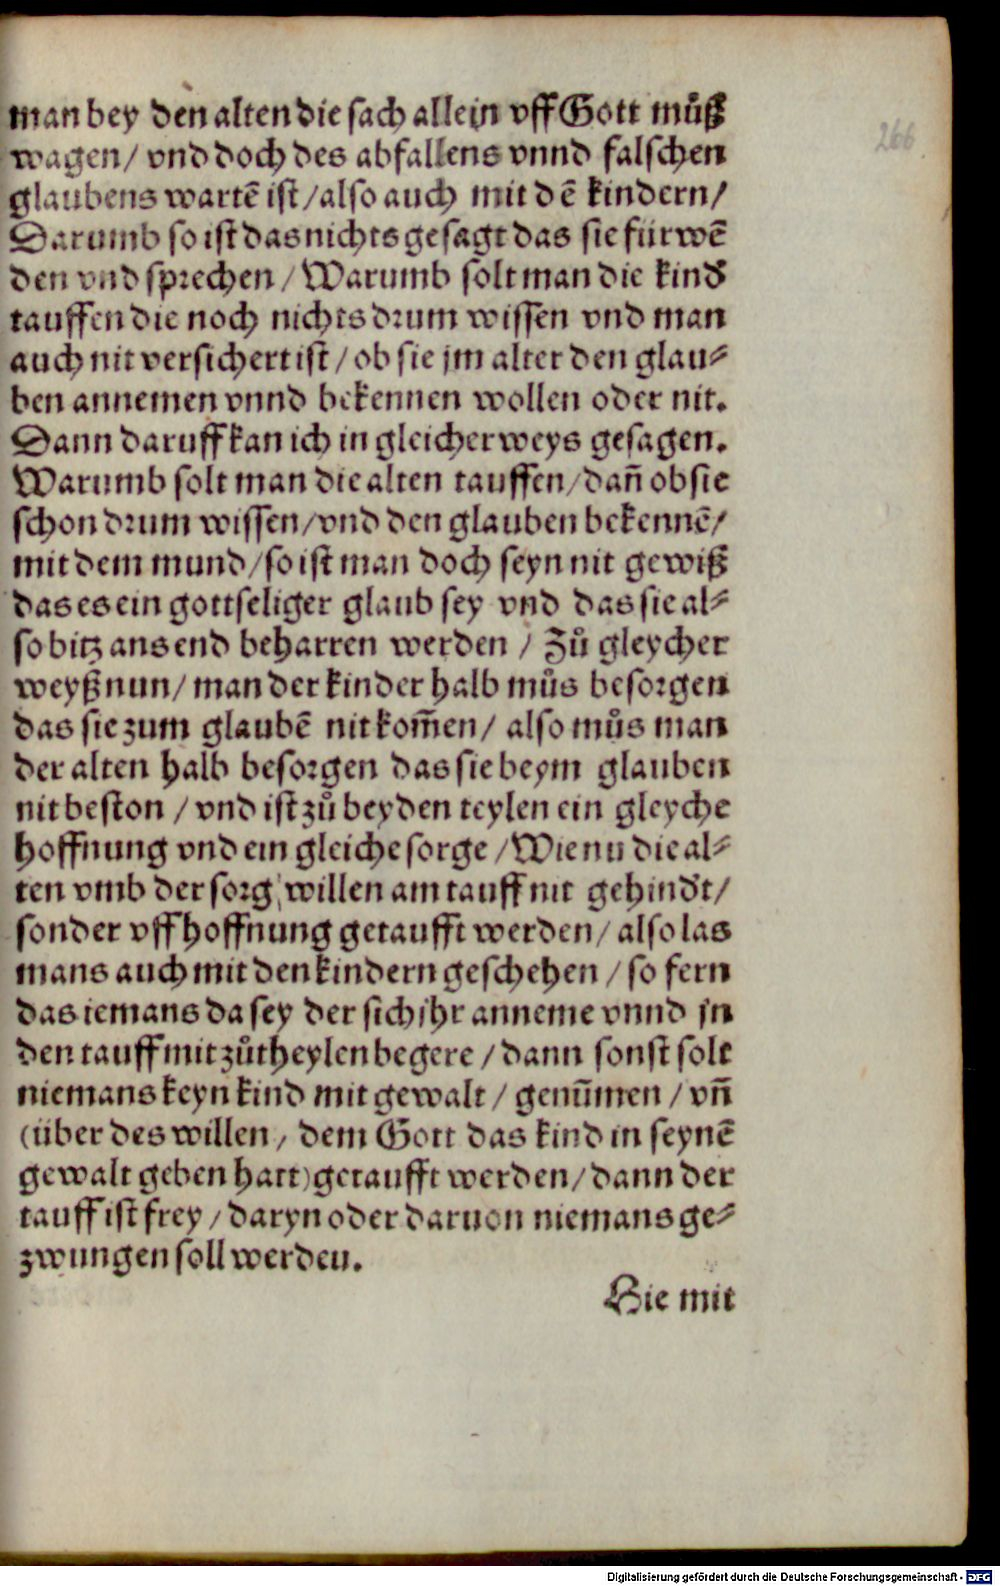 man bey den alten die sach allein vff Gott můß
wagen/ vnd doch des abfallens vnnd falschen
glaubens wartē ist/also auch mit dē kindern/
Darumb so ist das nichts gesagt das sie fürwē
den vnd sprechen/ Warumb solt man die kind
tauffen die noch nichts drum wissen vnd man
auch nit versichert ist/ ob sie jm alter den glau-
ben annemen vnnd bekennen wollen oder nit.
Dann daruff kan ich in gleicher weys gesagen.
Warumb solt man die alten tauffen/dañ ob sie
schon drum wissen/vnd den glauben bekennē/
mit dem mund/so ist man doch seyn nit gewiß
das es ein gottseliger glaub sey vnd das sie al-
so bitz ans end beharren werden/ Zů gleycher
weyß nun/ man der kinder halb můs besorgen
das sie zum glaubē nit kom̄en/ also můs man
der alten halb besorgen das sie beym glauben
nit beston/ vnd ist zů beyden teylen ein gleyche
hoffnung vnd ein gleiche sorge/Wie nu die al-
ten vmb der sorg willen am tauff nit gehindt/
sonder vff hoffnung getaufft werden/ also las
mans auch mit den kindern geschehen/ so fern
das iemans da sey der sich jhr anneme vnnd jn
den tauff mit zůtheylen begere/ dann sonst solt
niemans keyn kind mit gewalt/ genūmen/ vñ
(über des willen, dem Gott das kind in seynē
gewalt geben hatt) getaufft werden/ dann der
tauff ist frey/ daryn oder daruon niemans ge-
zwungen soll werden.
Hie mit
266
Digitalisierung gefördert durch die Deutsche Forschungsgemeinschaft - DFG